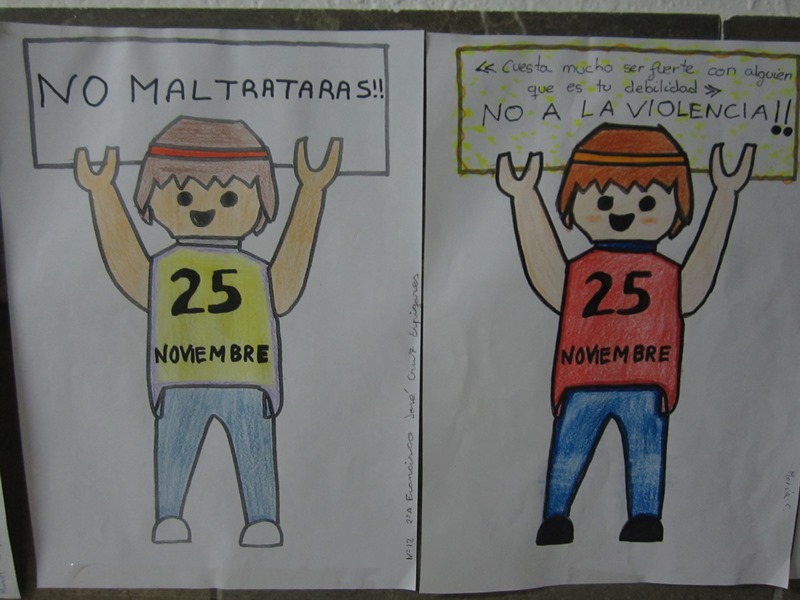 NO MALTRATARAS!!
25
NOVIEMBRE
Nº12 2ºA Francisco José Cruz
« Cuesta mucho ser fuerte con alguien
que es tu debilidad »
NO A LA VIOLENCIA!!
25
NOVIEMBRE